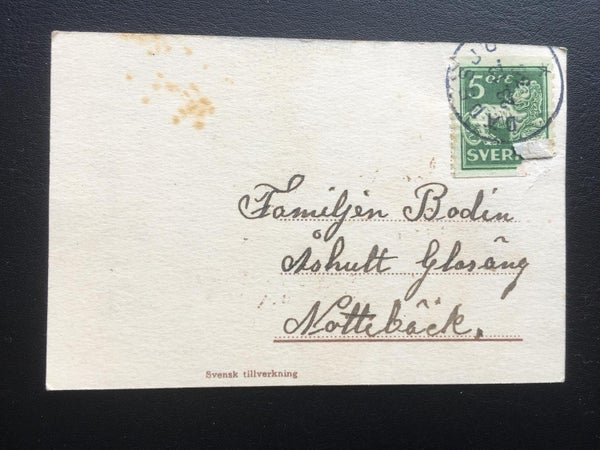 5 ÖRE
SVER
Familjen Bodin
Åshult Glosäng
Nottebäck.
Svensk tillverkning